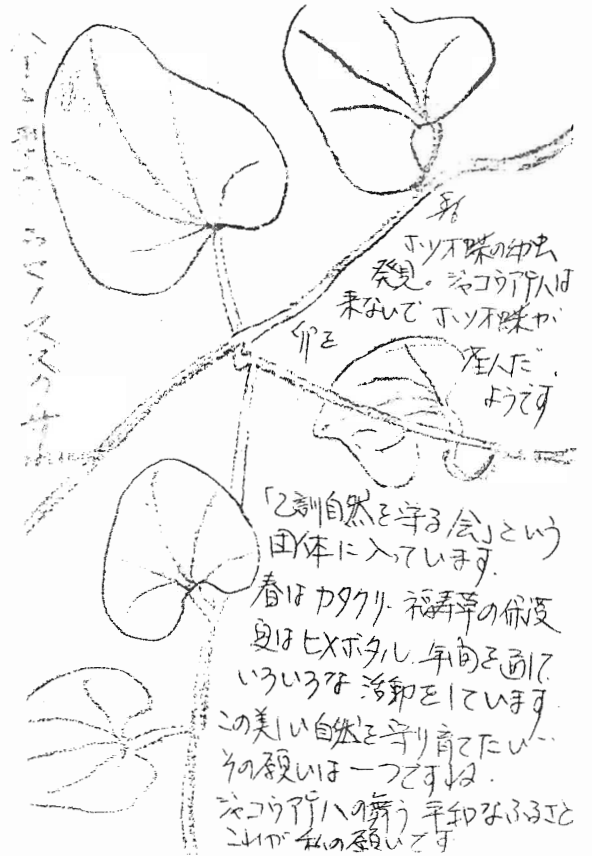 ホソオ蝶の幼虫
発見。ジャコウアゲハは
来ないで ホソオ蝶が
卵を
産んだ
ようです
「乙訓自然を守る会」という
団体に入っています。
春はカタクリ 福寿草の保護
夏はヒメボタル 年間を通して
いろいろな 活動をしています
この美しい自然を守り育てたい…
その願いは一つですね。
ジャコウアゲハの舞う 平和なふるさと
これが 私の願いです